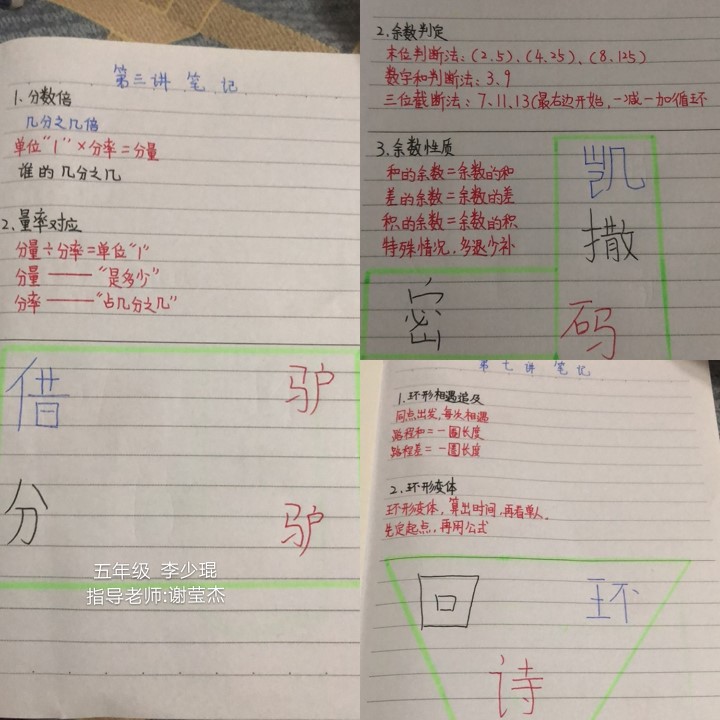 第三讲 笔记
1. 分数倍
几分之几倍
单位“1”×分率=分量
谁的几分之几
2. 量率对应
分量÷分率=单位“1”
分量——“是多少”
分率——“占几分之几”
借 驴
分 驴
五年级 李少琨
指导老师:谢莹杰
2. 余数判定
末位判断法:(2,5)、(4,25)、(8,125)
数字和判断法:3、9
三位截断法:7、11、13(最右边开始,一减一加循环
3. 余数性质
和的余数=余数的和
差的余数=余数的差
积的余数=余数的积
特殊情况,多退少补
凯
撒
密 码
第七讲 笔记
1. 环形相遇追及
同点出发,每次相遇
路程和=一圈长度
路程差=一圈长度
2. 环形变体
环形变体,算出时间,再看单人。
先定起点,再用公式
回 环
诗